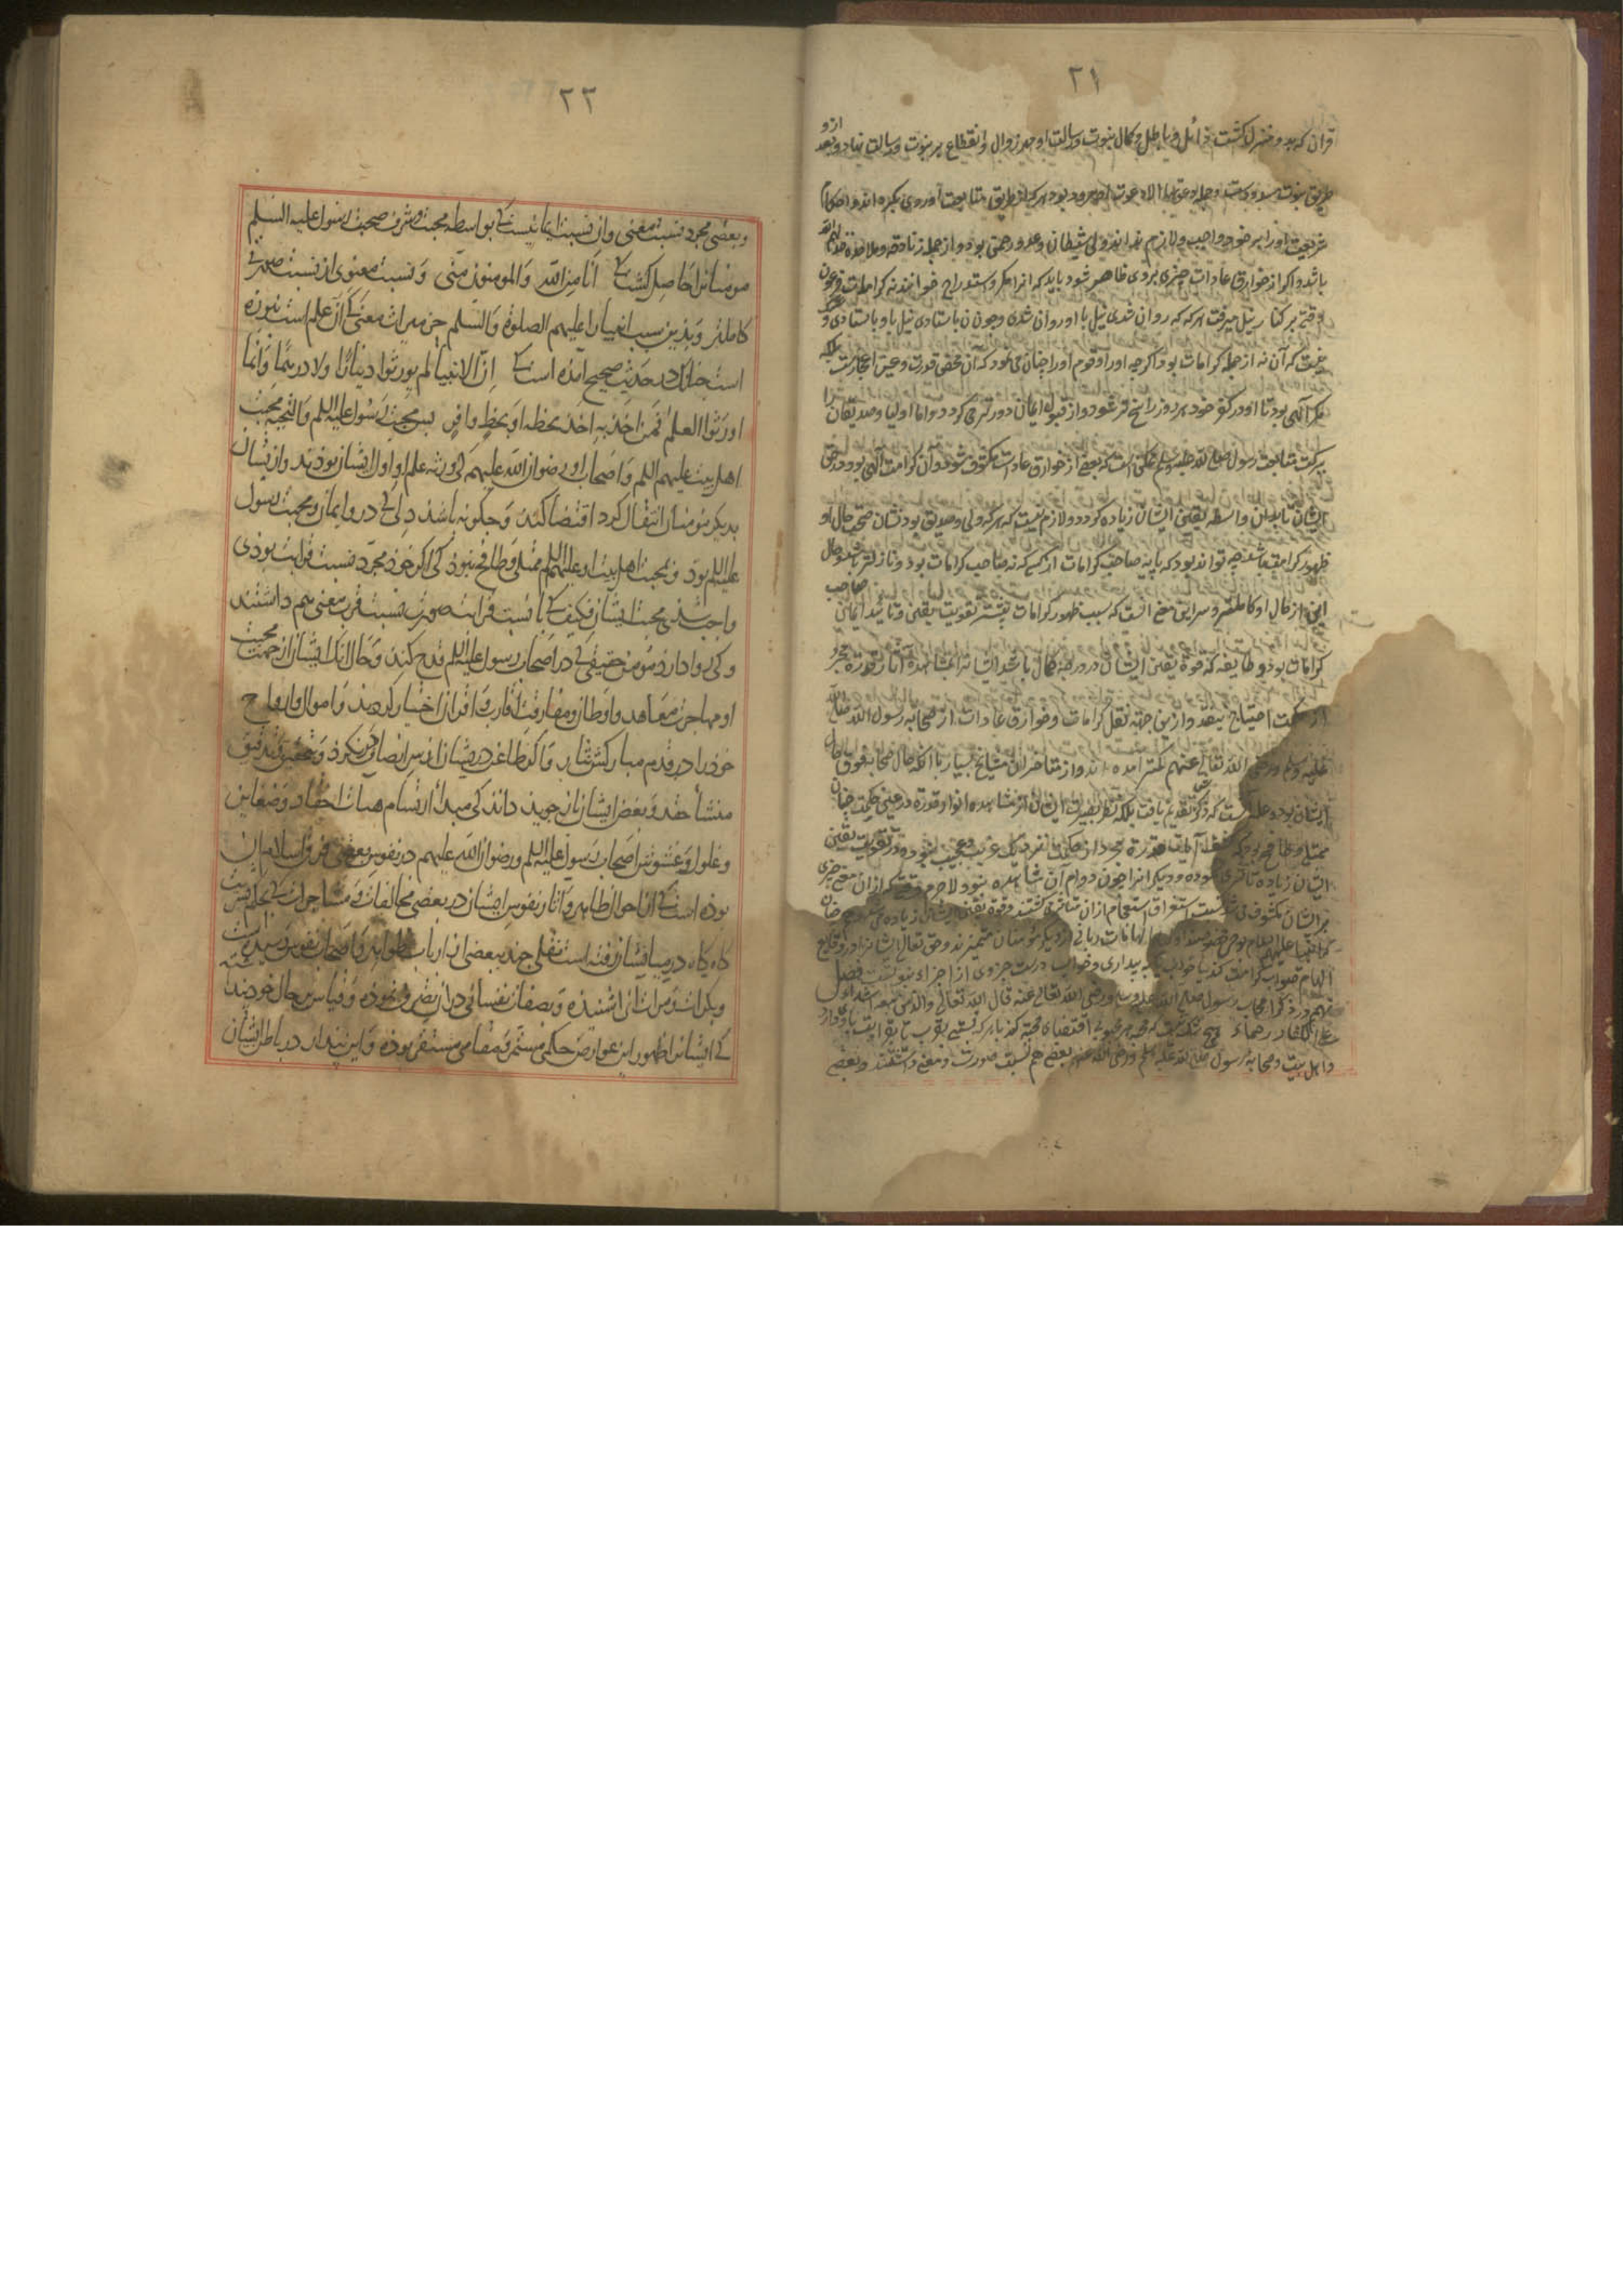 ٢١
قران که بدو منزل کشت زائل و باطل و کمال نبوت و رسالت او جز زوال و انقطاع بر نبوت و رسالت نهاد و بعد ازو
طریق نبوت مسدود کشت و جمله دعوتها الا دعوت او مردود بود هر که از طریق متابعت او روی بکرداند و احکام
شریعت او را بر خود واجب و لازم نداند ولی شیطان و عدو رحمن بود و از جمله زنادقه و ملاحده
باشد و اکر از خوارق عادات چیزی بر وی ظاهر شود باید که آنرا مکر و استدراج خوانند نه کرامات فرعون
وقتی بر کنار نیل میرفت هر که که روان شدی نیل با او روان شدی و چون باستادی نیل با او باستادی و
نیست که آن نه از جمله کرامات بود اکرچه او را و قوم او را چنان می نمود که آن محض قدرت و عین اعجازست بلکه
مکر الهی بود تا او در کفر خود هر روز راسخ تر شود و از قبول ایمان دورتر می کردد و اما اولیا و صدیقان را
ببرکت متابعت رسول صلی الله علیه و سلم ممکن است که بعضی از خوارق عادات مکشوف شود و آن کرامت الهی بود در حق
ایشان تا بدان واسطه یقین ایشان زیاده کردد و لازم نیست که هر که ولی و صدیق بود نشان صحت حال او
ظهور کرامت باشد چه تواند بود که پایه صاحب کرامات از کسی که نه صاحب کرامات بود نازلتر باشد و حال
این از حال او کاملتر و سر این معنی انست که سبب ظهور کرامات بیشتر تقویت یقین و تائید ایمان صاحب
کرامات بود و طایفه که قوة یقین ایشان در درجه کمال باشد ایشانرا بمشاهده آثار قدرة مجرد
از حکمت احتیاج نیفتد و ازین جهة نقل کرامات و خوارق عادات از صحابه رسول الله صلی الله
علیه و سلم و رضی الله تعالی عنهم کمتر آمده است و از متاخران مشایخ بسیار با آنکه حال صحابه فوق حال
ایشان بود و علت آنست که ذکرش تقدیم یافت بلکه نظر بصیرت ایشان از مشاهده انوار قدرة در عین حکمت چنان
ممتلی و طافح بود که آیات قدرة مجرد از حکمت بنزدیک غریب و عجیب ننمود و در تقویت یقین
ایشان زیاده تاثیری ننموده و دیکرانرا چون دوام آن مشاهده نبود لاجرم وقتی که از ان معنی چیزی
بر ایشان مکشوف می استغراق و استعجام ازان متاثر کشتند و قوة یقین ایشان زیاده
کما انبیا علیهم السلام بوحی مخصوصند اولیا بالهامات ربانی از دیکر مؤمنان متمیزند و حق تعالی ایشانرا در وقایع
الهام صواب کرامت کند یا بخواب یا به بیداری و خواب درست جزوی از اجزاء نبوتست فصل
نهم در ذکر اصحاب رسول صلی الله علیه و سلم و رضی الله تعالی عنه قال الله تعالی والذین معه اشداء
علی الکفار رحماء هیچ شک نیست که محبت هر محبوبی اقتضای محبة کند با هر که نسبتی و تقربی بدو دارد
و اهل بیت و صحابه رسول صلی الله علیه و سلم و رضی الله عنهم بعضی هم نسبت صورت و معنی داشتند و بعضی
٢٢
و بعضی مجرد نسبت معنی و آن نسبت ایمانیست که بواسطه محبت و شرف صحبت رسول علیه السلم
مومنانرا حاصل کشت که انا من الله والمومنون منی و نسبت معنوی از نسبت صورتی
کاملتر و بدین سبب انبیا را علیهم الصلوة و السلم جز میراث معنی که آن علم است نبوده
است چنانک در حدیث صحیح آمده است که ان الانبیا لم یورثوا دینارا ولا درهما وانما
اورثوا العلم فمن اخذ به اخذ بحظه او بحظ وافر پس محبت رسول علیه السلم والتحیه محبت
اهل بیت علیهم السلم و اصحاب او رضوان الله علیهم که ورثه علم او اولا ایشان بودند و از یشان
بدیکر مومنان انتقال کرد اقتضا کند و چکونه باشد دلی که درو ایمان و محبت رسول
علیه السلم بود و بمحبت اهل بیت او علیهم السلم ممتلی و طافح نبود که اکر خود مجرد نسبت قرابت بودی
واجب شدی محبت ایشان فکیف که با نسبت قرابت صورت نسبت قرب معنی هم داشتند
و کی روا دارد مؤمن حقیقی که در اصحاب رسول علیه السلم قدح کند و حال انک ایشان از جهت محبت
او مهاجرت معاهد و اوطان و مفارقت اقارب و اقران اختیار کردند و اموال و ارواح
خود را در قدم مبارکش نثار و اکر طاعنی در یشان از سر انصاف فکر کرد و تحقیق و تدقیق
منشا حقد و بغض ایشان باز جوید داند که مبدا ارتسام هیات احقاد و ضغاین
و غلول و غشوش اصحاب رسول علیه السلم و رضوان الله علیهم در نفوس بعضی فرق اسلامیان
بوده است که از احوال ظاهر و اثار نفوس ایشان در بعضی مخالفات و مشاجرات که بحکم بشریت
کاه کاه در میان ایشان رفته است نقلی چند ببعضی از ارباب ظواهر و اصحاب نفوس رسیده است
و بکرات و مرات آن اشنیده و بصفات نفسانی دران تصرف نموده و قیاس بر حال خود دیده
که ایشانرا ظهور این عوارض حکمی مستمر و مقامی مستقر بوده و این پندار در باطن ایشان